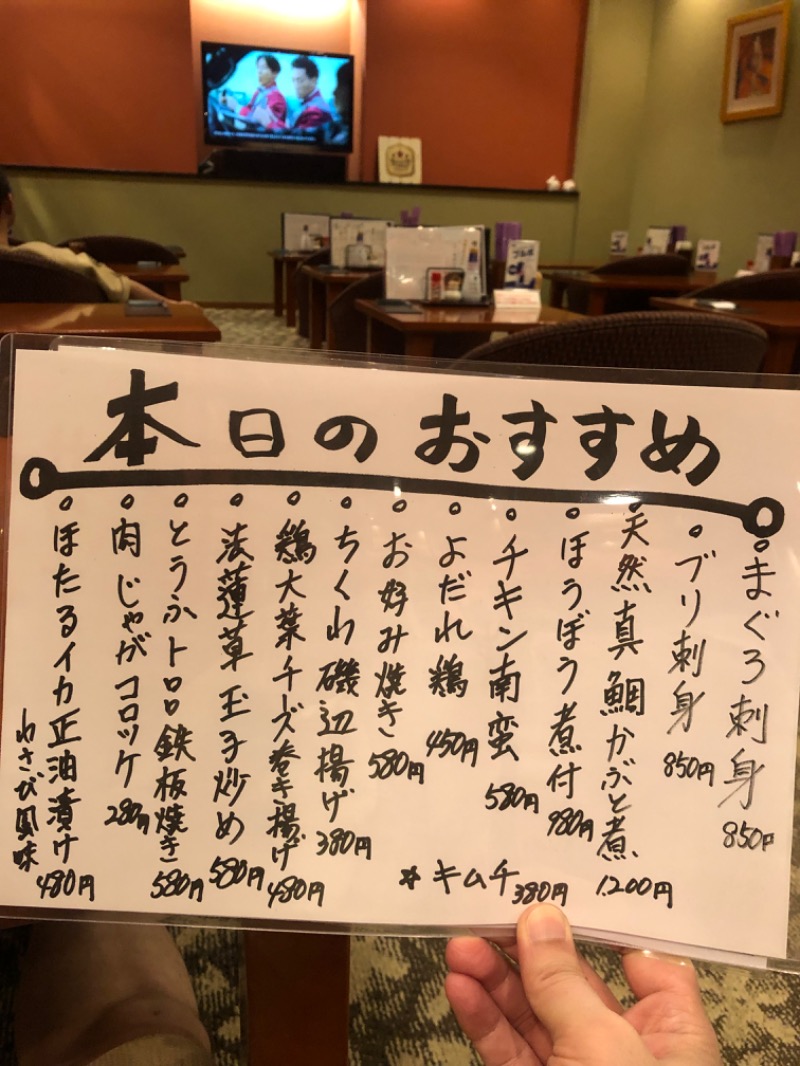 本日のおすすめ
まぐろ刺身 850円
ブリ刺身 850円
天然真鯛かぶと煮 1,200円
ほうぼう煮付 980円
チキン南蛮 580円
よだれ鶏 450円
お好み焼き 580円
ちくわ磯辺揚げ 380円
鶏大葉チーズ巻き揚げ 480円
法蓮草玉子炒め 580円
とうふトロロ鉄板焼き 580円
肉じゃがコロッケ 280円
ほたるイカ正油漬け 480円
わさび風味
*キムチ 380円